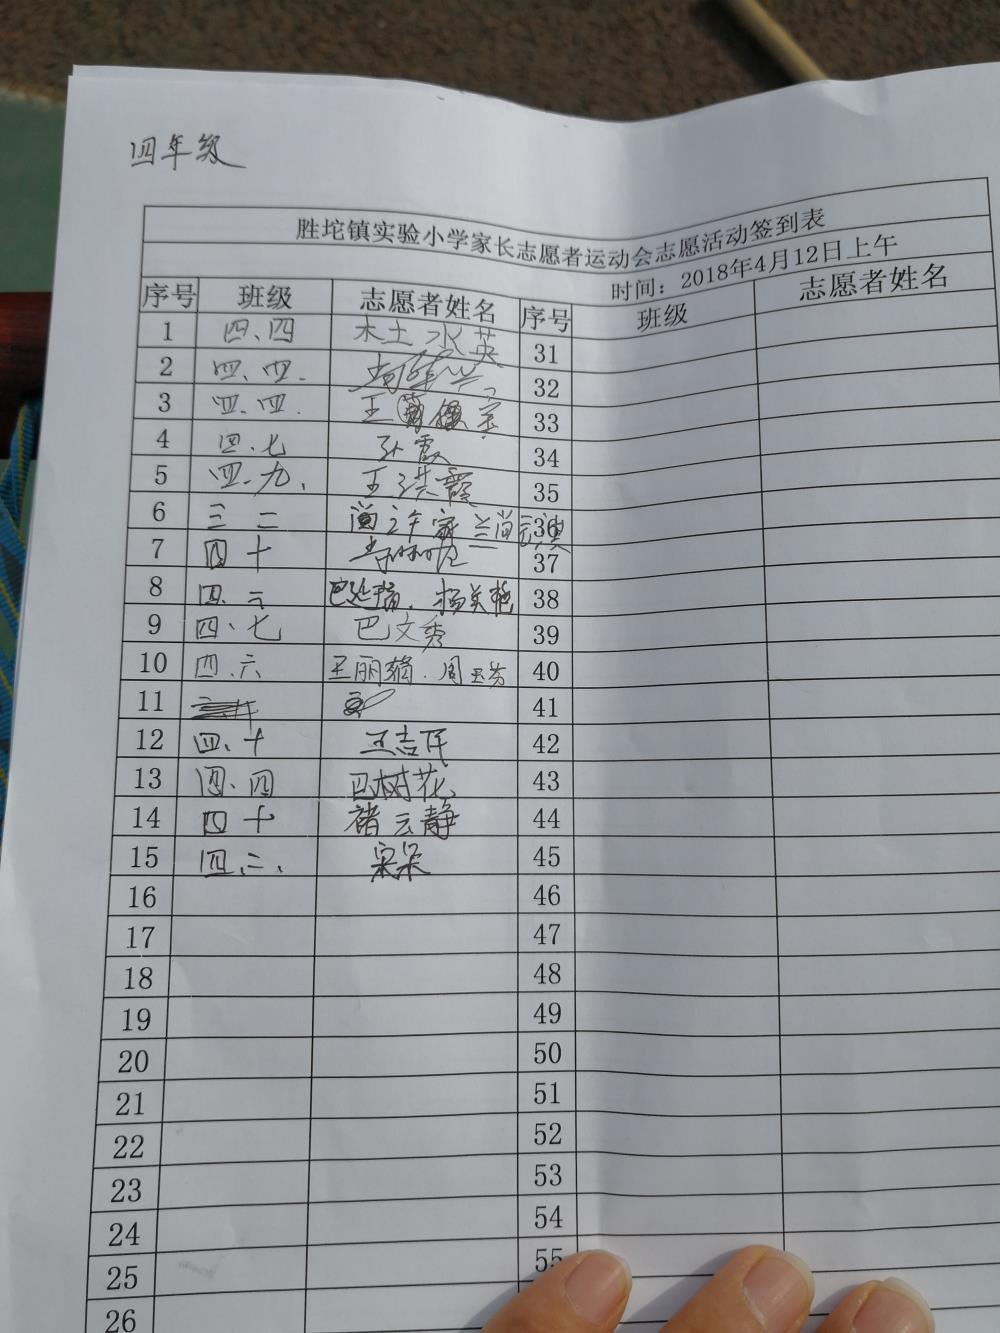 四年级
胜坨镇实验小学家长志愿者运动会志愿活动签到表
时间：2018年4月12日上午
序号 班级 志愿者姓名 序号 班级 志愿者姓名
1 四、四 杜水英 31
2 四、四. 32
3 四、四. 王 33
4 四、七 孙霞 34
5 四、九、 王洪霞 35
6 三 二 36
7 四 十 37
8 四、二 38
9 四、七 巴文秀 39
10 四、六 王丽娟. 周玉芬 40
11 41
12 四、十 王吉民 42
13 四、四 巴树花、 43
14 四 十 褚云静 44
15 四、二、 45
16 46
17 47
18 48
19 49
20 50
21 51
22 52
23 53
24 54
25 55
26